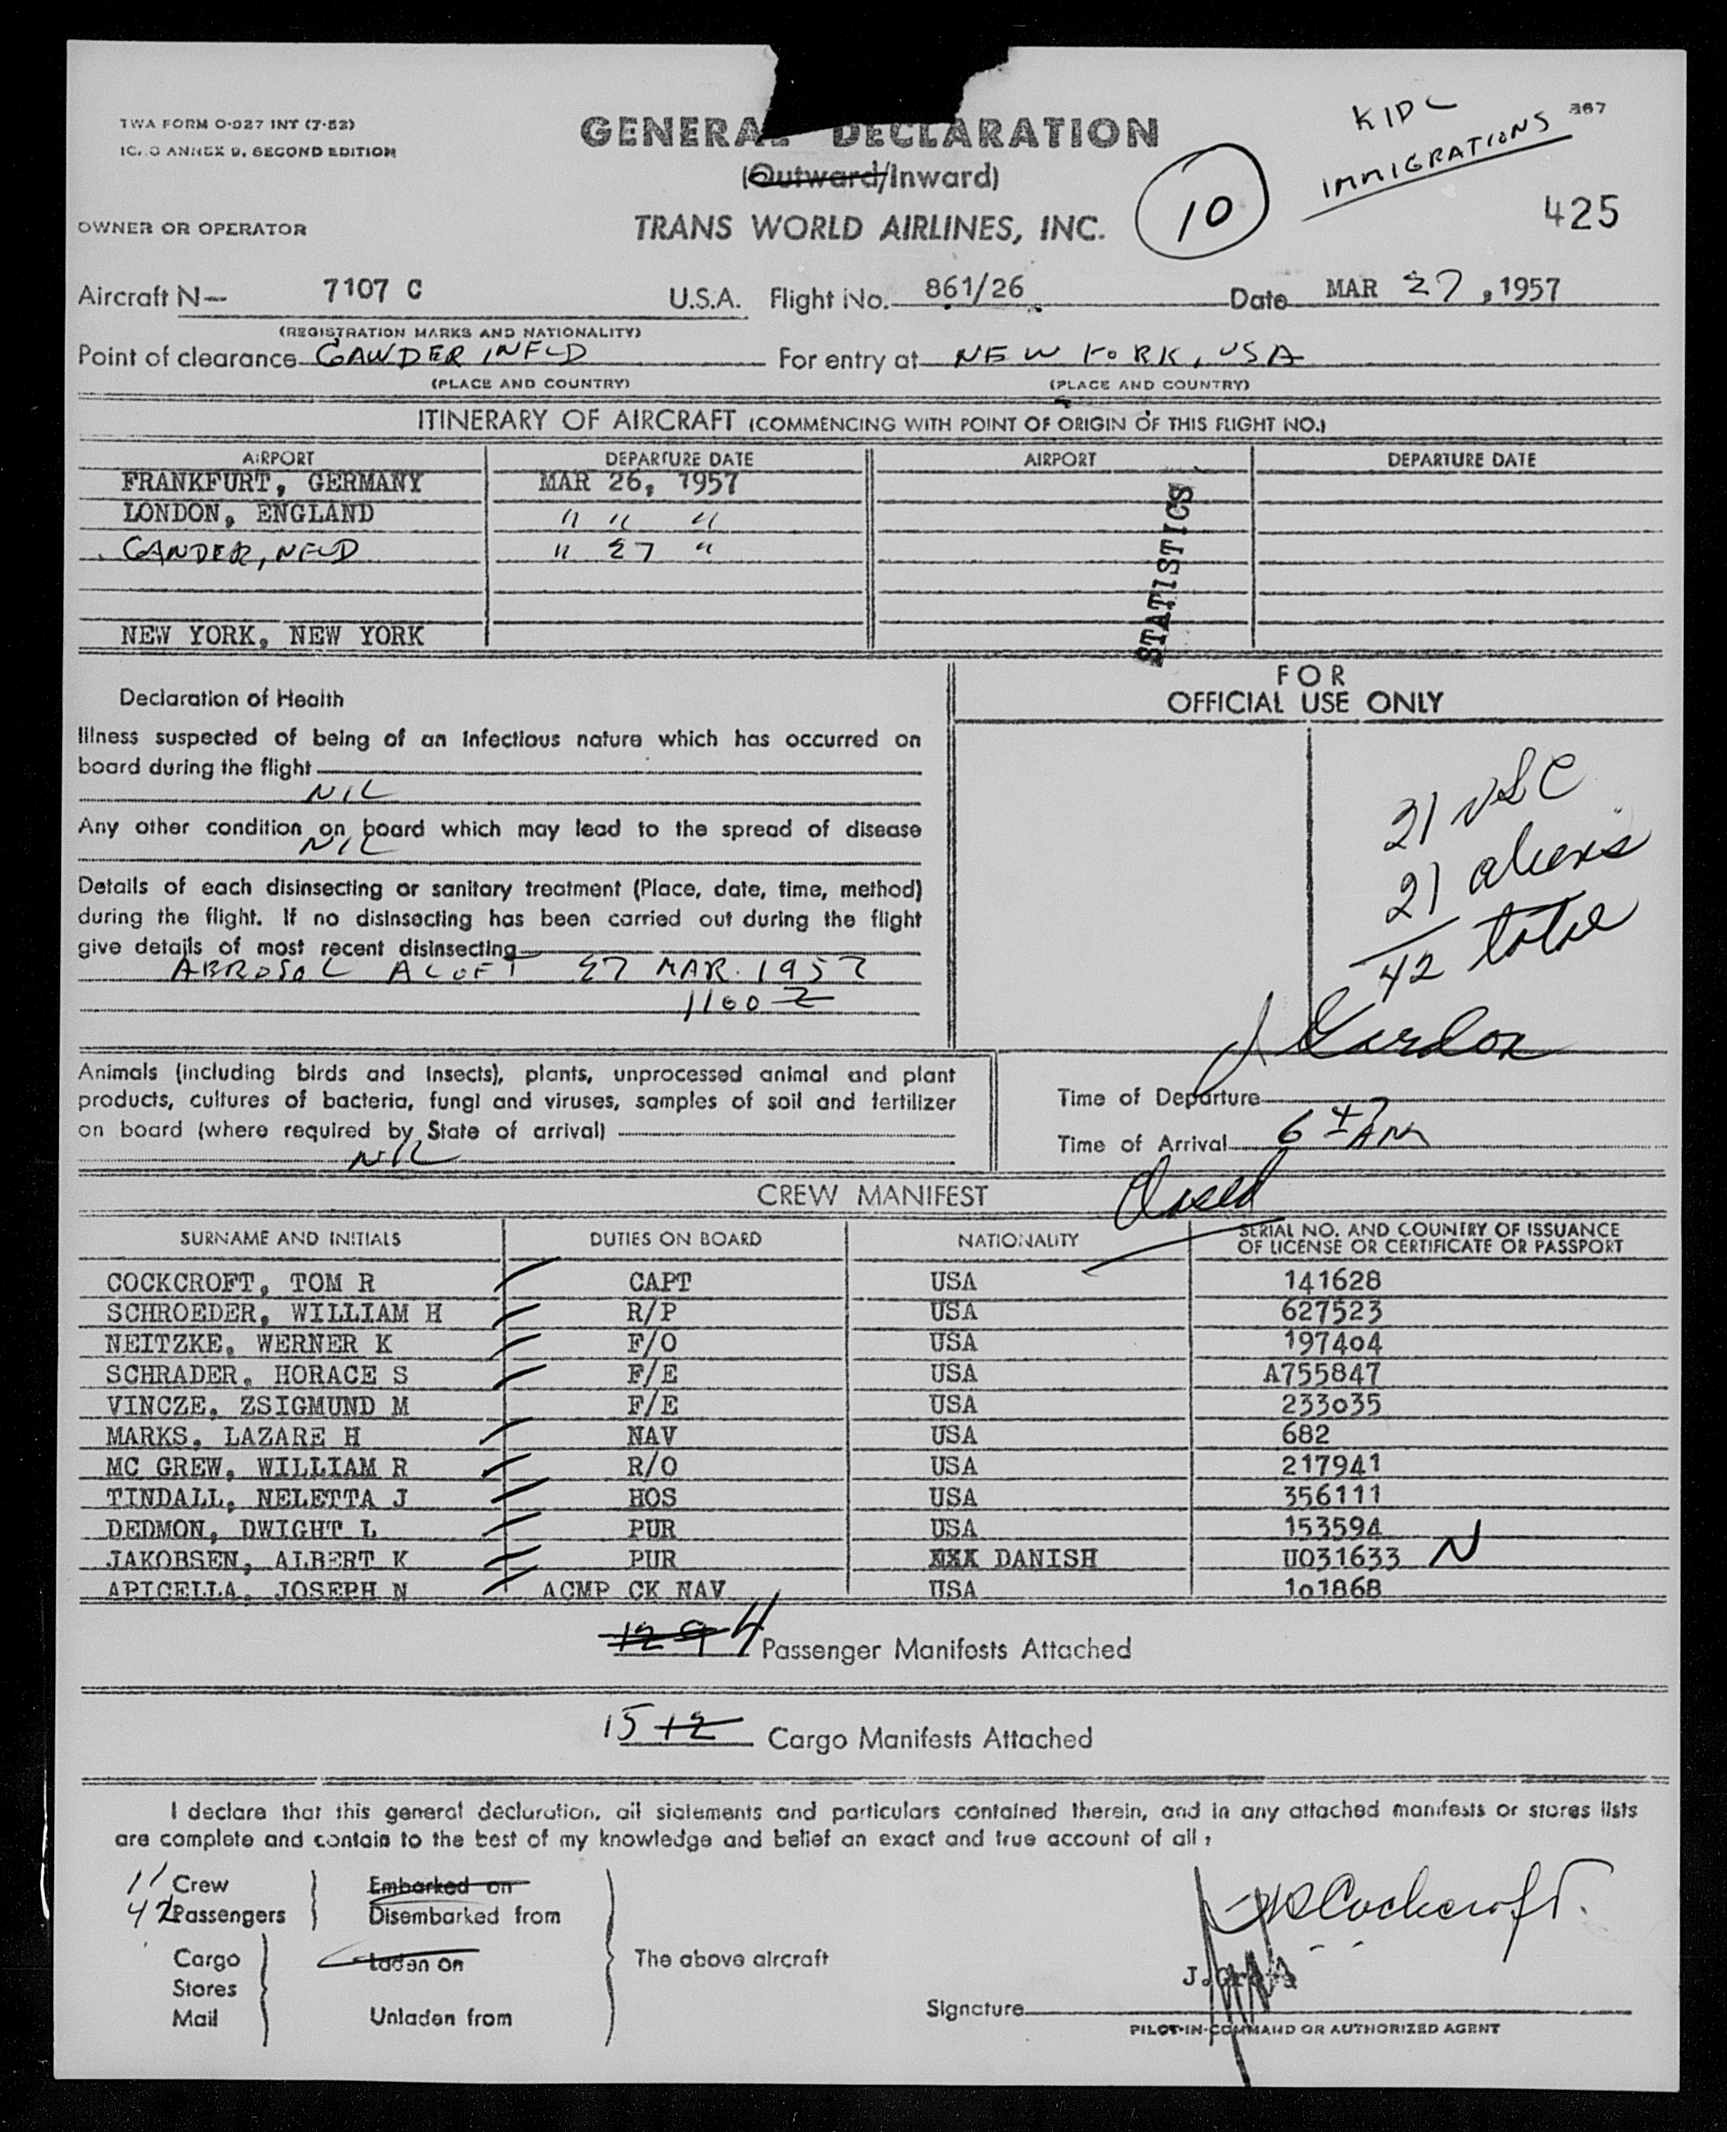 TWA FORM O-927 INT (7-52)
ICAO ANNEX 9, SECOND EDITION
GENERAL DECLARATION
(Outward/Inward)
KIDL 367
IMMIGRATIONS
10
425
OWNER OR OPERATOR
TRANS WORLD AIRLINES, INC.
Aircraft N— 7107 C U.S.A. Flight No. 861/26 Date MAR 27, 1957
(REGISTRATION MARKS AND NATIONALITY)
Point of clearance GANDER, NFLD For entry at NEW YORK, USA
(PLACE AND COUNTRY) (PLACE AND COUNTRY)
ITINERARY OF AIRCRAFT (COMMENCING WITH POINT OF ORIGIN OF THIS FLIGHT NO.)
AIRPORT DEPARTURE DATE AIRPORT DEPARTURE DATE
FRANKFURT, GERMANY MAR 26, 1957
LONDON, ENGLAND " " "
GANDER, NFLD " 27 "
NEW YORK, NEW YORK
STATISTICS
Declaration of Health
Illness suspected of being of an infectious nature which has occurred on
board during the flight
NIL
Any other condition on board which may lead to the spread of disease
NIL
Details of each disinsecting or sanitary treatment (Place, date, time, method)
during the flight. If no disinsecting has been carried out during the flight
give details of most recent disinsecting
AEROSOL ALOFT 27 MAR. 1957
1100 Z
FOR
OFFICIAL USE ONLY
21 USC
21 aliens
42 total
J Gordon
Animals (including birds and insects), plants, unprocessed animal and plant
products, cultures of bacteria, fungi and viruses, samples of soil and fertilizer
on board (where required by State of arrival)
NIL
Time of Departure
Time of Arrival 6 47 AM
Closed
CREW MANIFEST
SURNAME AND INITIALS DUTIES ON BOARD NATIONALITY SERIAL NO. AND COUNTRY OF ISSUANCE
OF LICENSE OR CERTIFICATE OR PASSPORT
COCKCROFT, TOM R CAPT USA 141628
SCHROEDER, WILLIAM H R/P USA 627523
NEITZKE, WERNER K F/O USA 197404
SCHRADER, HORACE S F/E USA A755847
VINCZE, ZSIGMUND M F/E USA 233035
MARKS, LAZARE H NAV USA 682
MC GREW, WILLIAM R R/O USA 217941
TINDALL, NELETTA J HOS USA 356111
DEDMON, DWIGHT L PUR USA 153594
JAKOBSEN, ALBERT K PUR XXX DANISH U031633 N
APICELLA, JOSEPH N ACMP CK NAV USA 101868
129 4 Passenger Manifests Attached
15 12 Cargo Manifests Attached
I declare that this general declaration, all statements and particulars contained therein, and in any attached manifests or stores lists
are complete and contain to the best of my knowledge and belief an exact and true account of all:
11 Crew Embarked on
42 Passengers Disembarked from
Cargo Laden on The above aircraft
Stores
Mail Unladen from
TR Cockcroft.
Signature
PILOT-IN-COMMAND OR AUTHORIZED AGENT